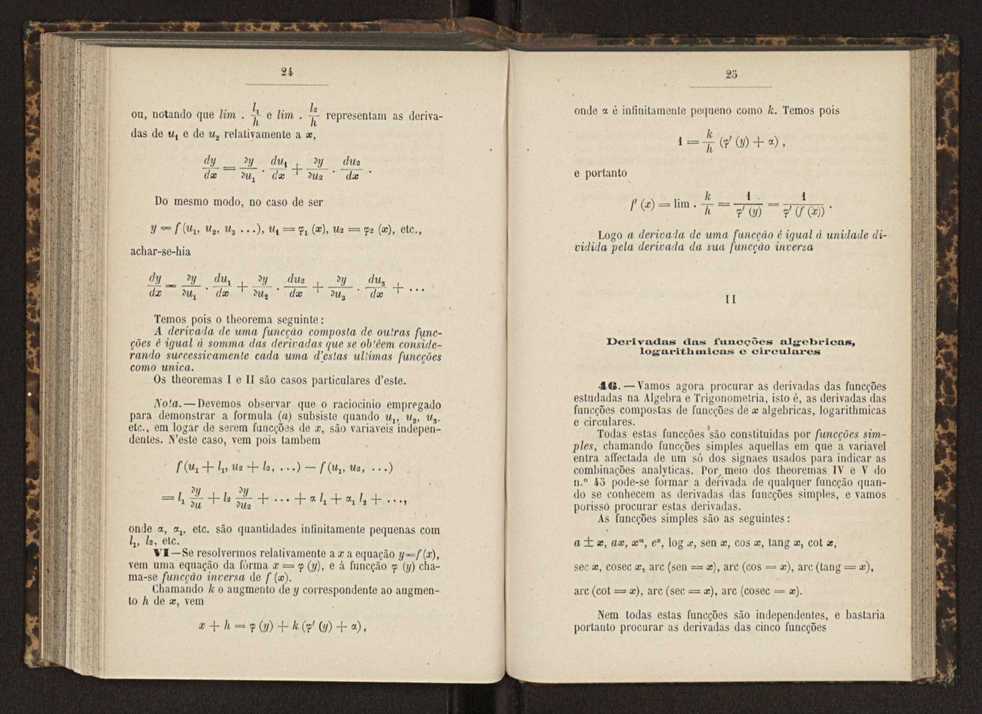 24
ou, notando que lim . l₁/h e lim . l₂/h representam as deriva-
das de u₁ e de u₂ relativamente a x,
dy/dx = ∂y/∂u₁ . du₁/dx + ∂y/∂u₂ . du₂/dx .
Do mesmo modo, no caso de ser
y = f (u₁, u₂, u₃ ...), u₁ = φ₁ (x), u₂ = φ₂ (x), etc.,
achar-se-hia
dy/dx = ∂y/∂u₁ . du₁/dx + ∂y/∂u₂ . du₂/dx + ∂y/∂u₃ . du₃/dx + ...
Temos pois o theorema seguinte:
A derivada de uma funcção composta de outras func-
ções é igual á somma das derivadas que se obtéem conside-
rando successivamente cada uma d'estas ultimas funcções
como unica.
Os theoremas I e II são casos particulares d'este.
Nota. — Devemos observar que o raciocinio empregado
para demonstrar a formula (a) subsiste quando u₁, u₂, u₃,
etc., em logar de serem funcções de x, são variaveis indepen-
dentes. N'este caso, vem pois tambem
f (u₁ + l₁, u₂ + l₂, ...) — f (u₁, u₂, ...)
= l₁ ∂y/∂u + l₂ ∂y/∂u₂ + ... + α l₁ + α₁ l₂ + ...,
onde α, α₁, etc. são quantidades infinitamente pequenas com
l₁, l₂, etc.
VI — Se resolvermos relativamente a x a equação y = f (x),
vem uma equação da fórma x = φ (y), e á funcção φ (y) cha-
ma-se funcção inversa de f (x).
Chamando k o augmento de y correspondente ao augmen-
to h de x, vem
x + h = φ (y) + k (φ' (y) + α),
25
onde α é infinitamente pequeno como k. Temos pois
1 = k/h (φ' (y) + α) ,
e portanto
f' (x) = lim . k/h = 1/φ' (y) = 1/φ' (f (x)) .
Logo a derivada de uma funcção é igual á unidade di-
vidida pela derivada da sua funcção inversa
II
Derivadas das funcções algebricas,
logarithmicas e circulares
16. — Vamos agora procurar as derivadas das funcções
estudadas na Algebra e Trigonometria, isto é, as derivadas das
funcções compostas de funcções de x algebricas, logarithmicas
e circulares.
Todas estas funcções são constituidas por funcções sim-
ples, chamando funcções simples aquellas em que a variavel
entra affectada de um só dos signaes usados para indicar as
combinações analyticas. Por meio dos theoremas IV e V do
n.º 15 pode-se formar a derivada de qualquer funcção quan-
do se conhecem as derivadas das funcções simples, e vamos
porisso procurar estas derivadas.
As funcções simples são as seguintes:
a ± x, ax, xᵐ, eˣ, log x, sen x, cos x, tang x, cot x,
sec x, cosec x, arc (sen = x), arc (cos = x), arc (tang = x),
arc (cot = x), arc (sec = x), arc (cosec = x).
Nem todas estas funcções são independentes, e bastaria
portanto procurar as derivadas das cinco funcções